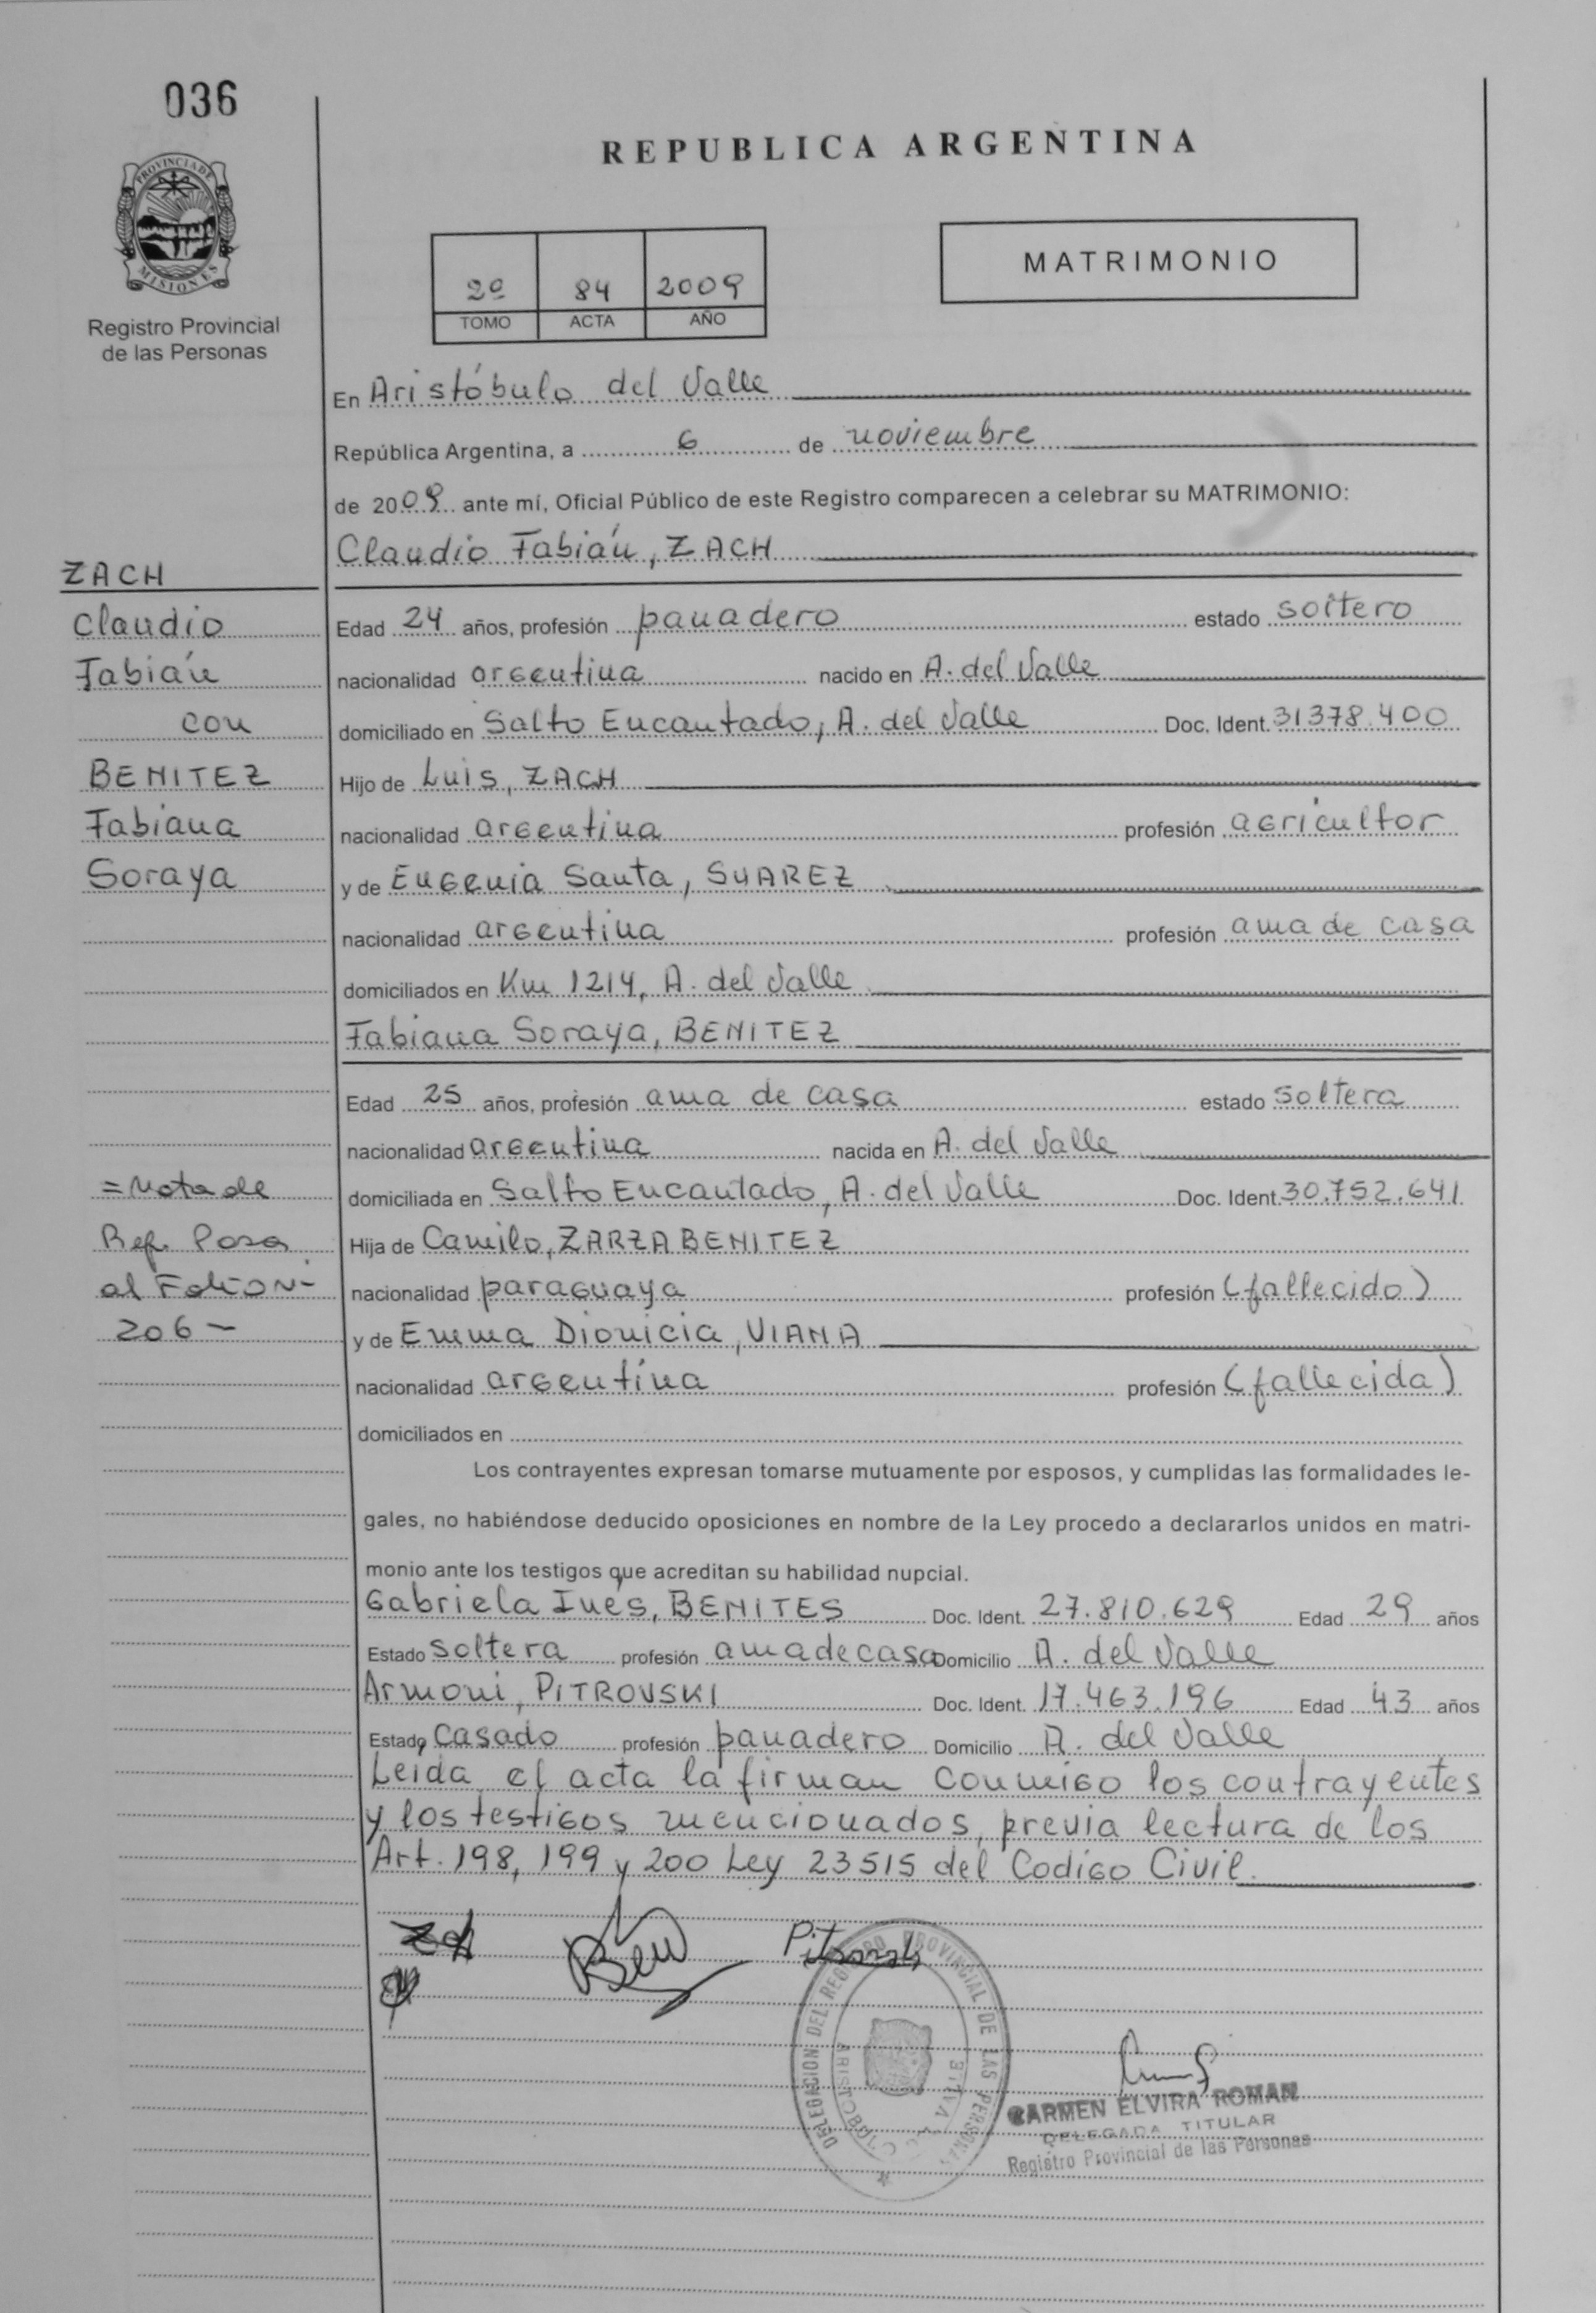 036
PROVINCIA DE
MISIONES
Registro Provincial
de las Personas
REPUBLICA ARGENTINA
2º 84 2009
TOMO ACTA AÑO
MATRIMONIO
En Aristóbulo del Valle
República Argentina, a 6 de noviembre
de 2009 ante mí, Oficial Público de este Registro comparecen a celebrar su MATRIMONIO:
Claudio Fabián, ZACH
ZACH
Claudio
Fabián
con
BENITEZ
Fabiana
Soraya
Edad 24 años, profesión panadero estado soltero
nacionalidad argentina nacido en A. del Valle
domiciliado en Salto Encantado, A. del Valle Doc. Ident. 31378.400
Hijo de Luis, ZACH
nacionalidad argentina profesión agricultor
y de Eugenia Santa, SUAREZ
nacionalidad argentina profesión ama de casa
domiciliados en Km 1214, A. del Valle
Fabiana Soraya, BENITEZ
Edad 25 años, profesión ama de casa estado soltera
nacionalidad argentina nacida en A. del Valle
domiciliada en Salto Encantado, A. del Valle Doc. Ident. 30.752.641
Hija de Camilo, ZARZA BENITEZ
nacionalidad paraguaya profesión (fallecido)
y de Emma Dionicia, VIANA
nacionalidad argentina profesión (fallecida)
domiciliados en
= Nota de
Ref. Pasa
al Folio Nº
206 -
Los contrayentes expresan tomarse mutuamente por esposos, y cumplidas las formalidades le-
gales, no habiéndose deducido oposiciones en nombre de la Ley procedo a declararlos unidos en matri-
monio ante los testigos que acreditan su habilidad nupcial.
Gabriela Inés, BENITES Doc. Ident. 27.810.629 Edad 29 años
Estado soltera profesión ama de casa Domicilio A. del Valle
Armoni, PITROVSKI Doc. Ident. 17.463.196 Edad 43 años
Estado casado profesión panadero Domicilio A. del Valle
Leida el acta la firman conmigo los contrayentes
y los testigos mencionados, previa lectura de los
Art. 198, 199 y 200 Ley 23515 del Codigo Civil.
DELEGACION DEL REGISTRO PROVINCIAL DE LAS PERSONAS
CARMEN ELVIRA ROMAN
DELEGADA TITULAR
Registro Provincial de las Personas